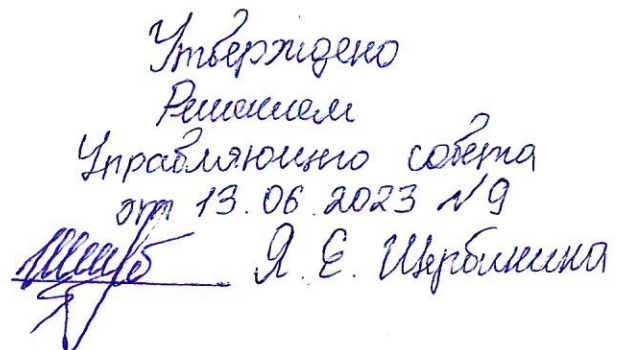 Утверждено
Решением
Управляющего совета
от 13.06.2023 №9
Я. Е. Щербинина